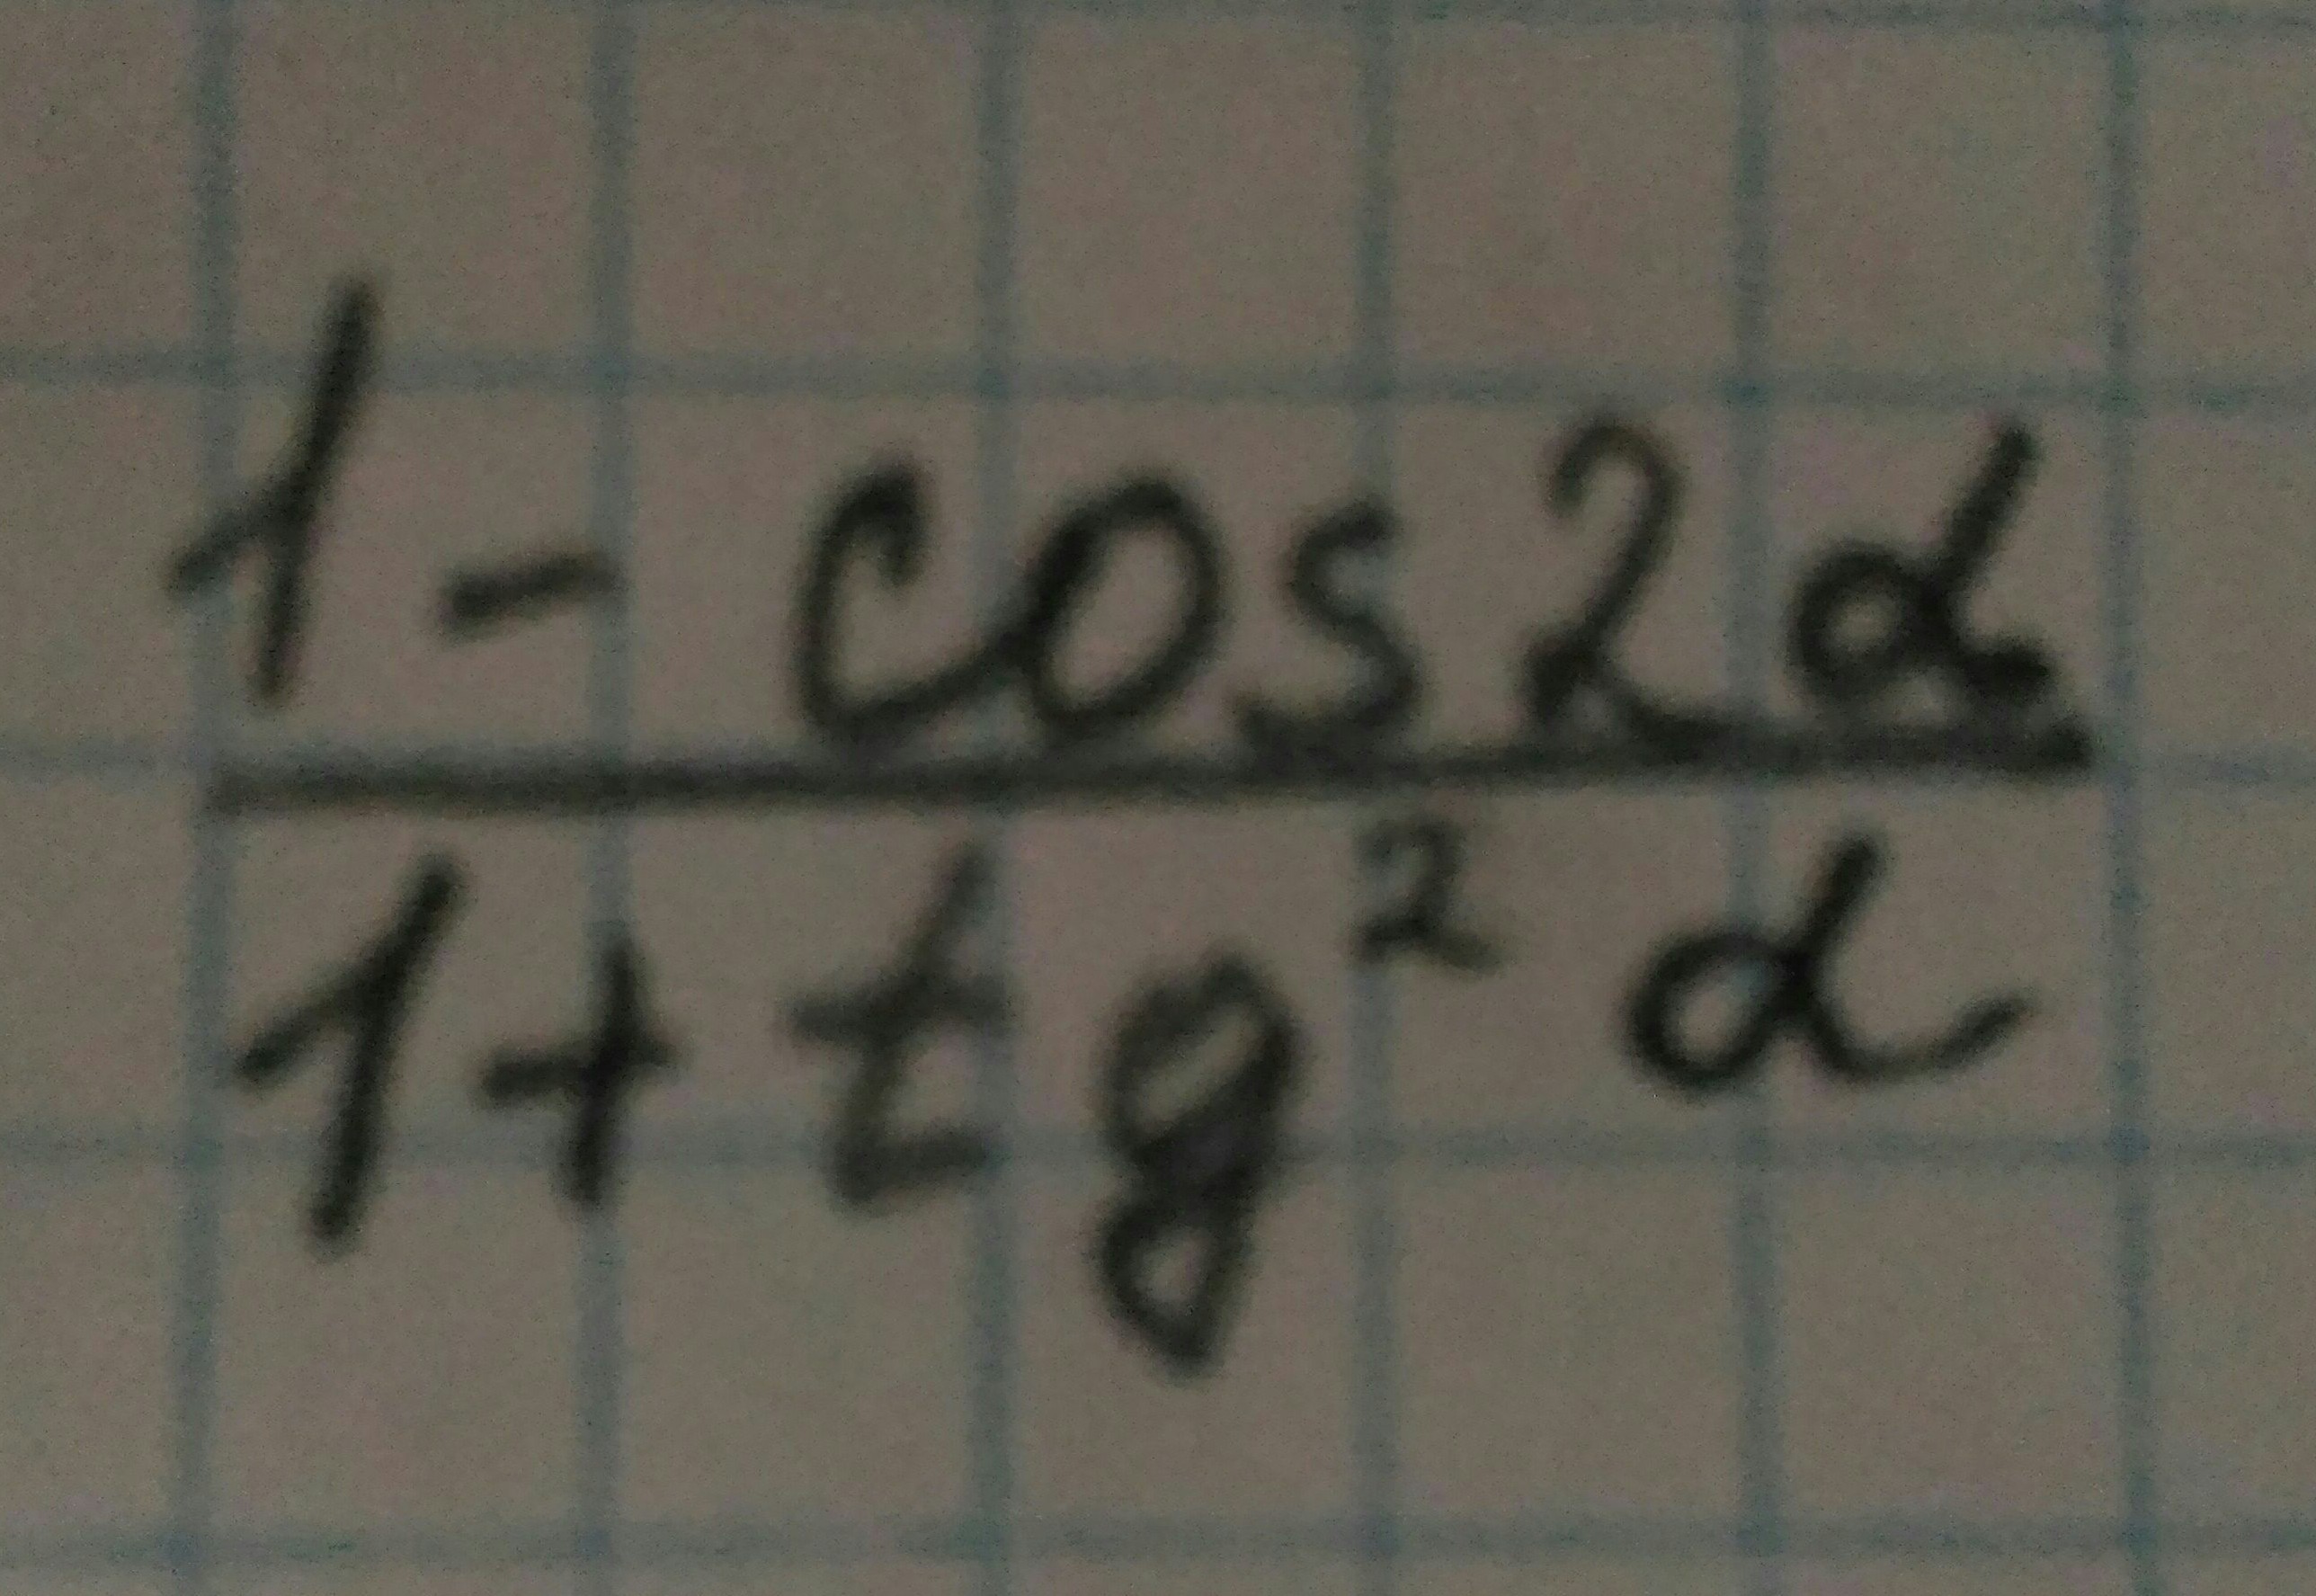 1 - cos 2α
1 + tg² α